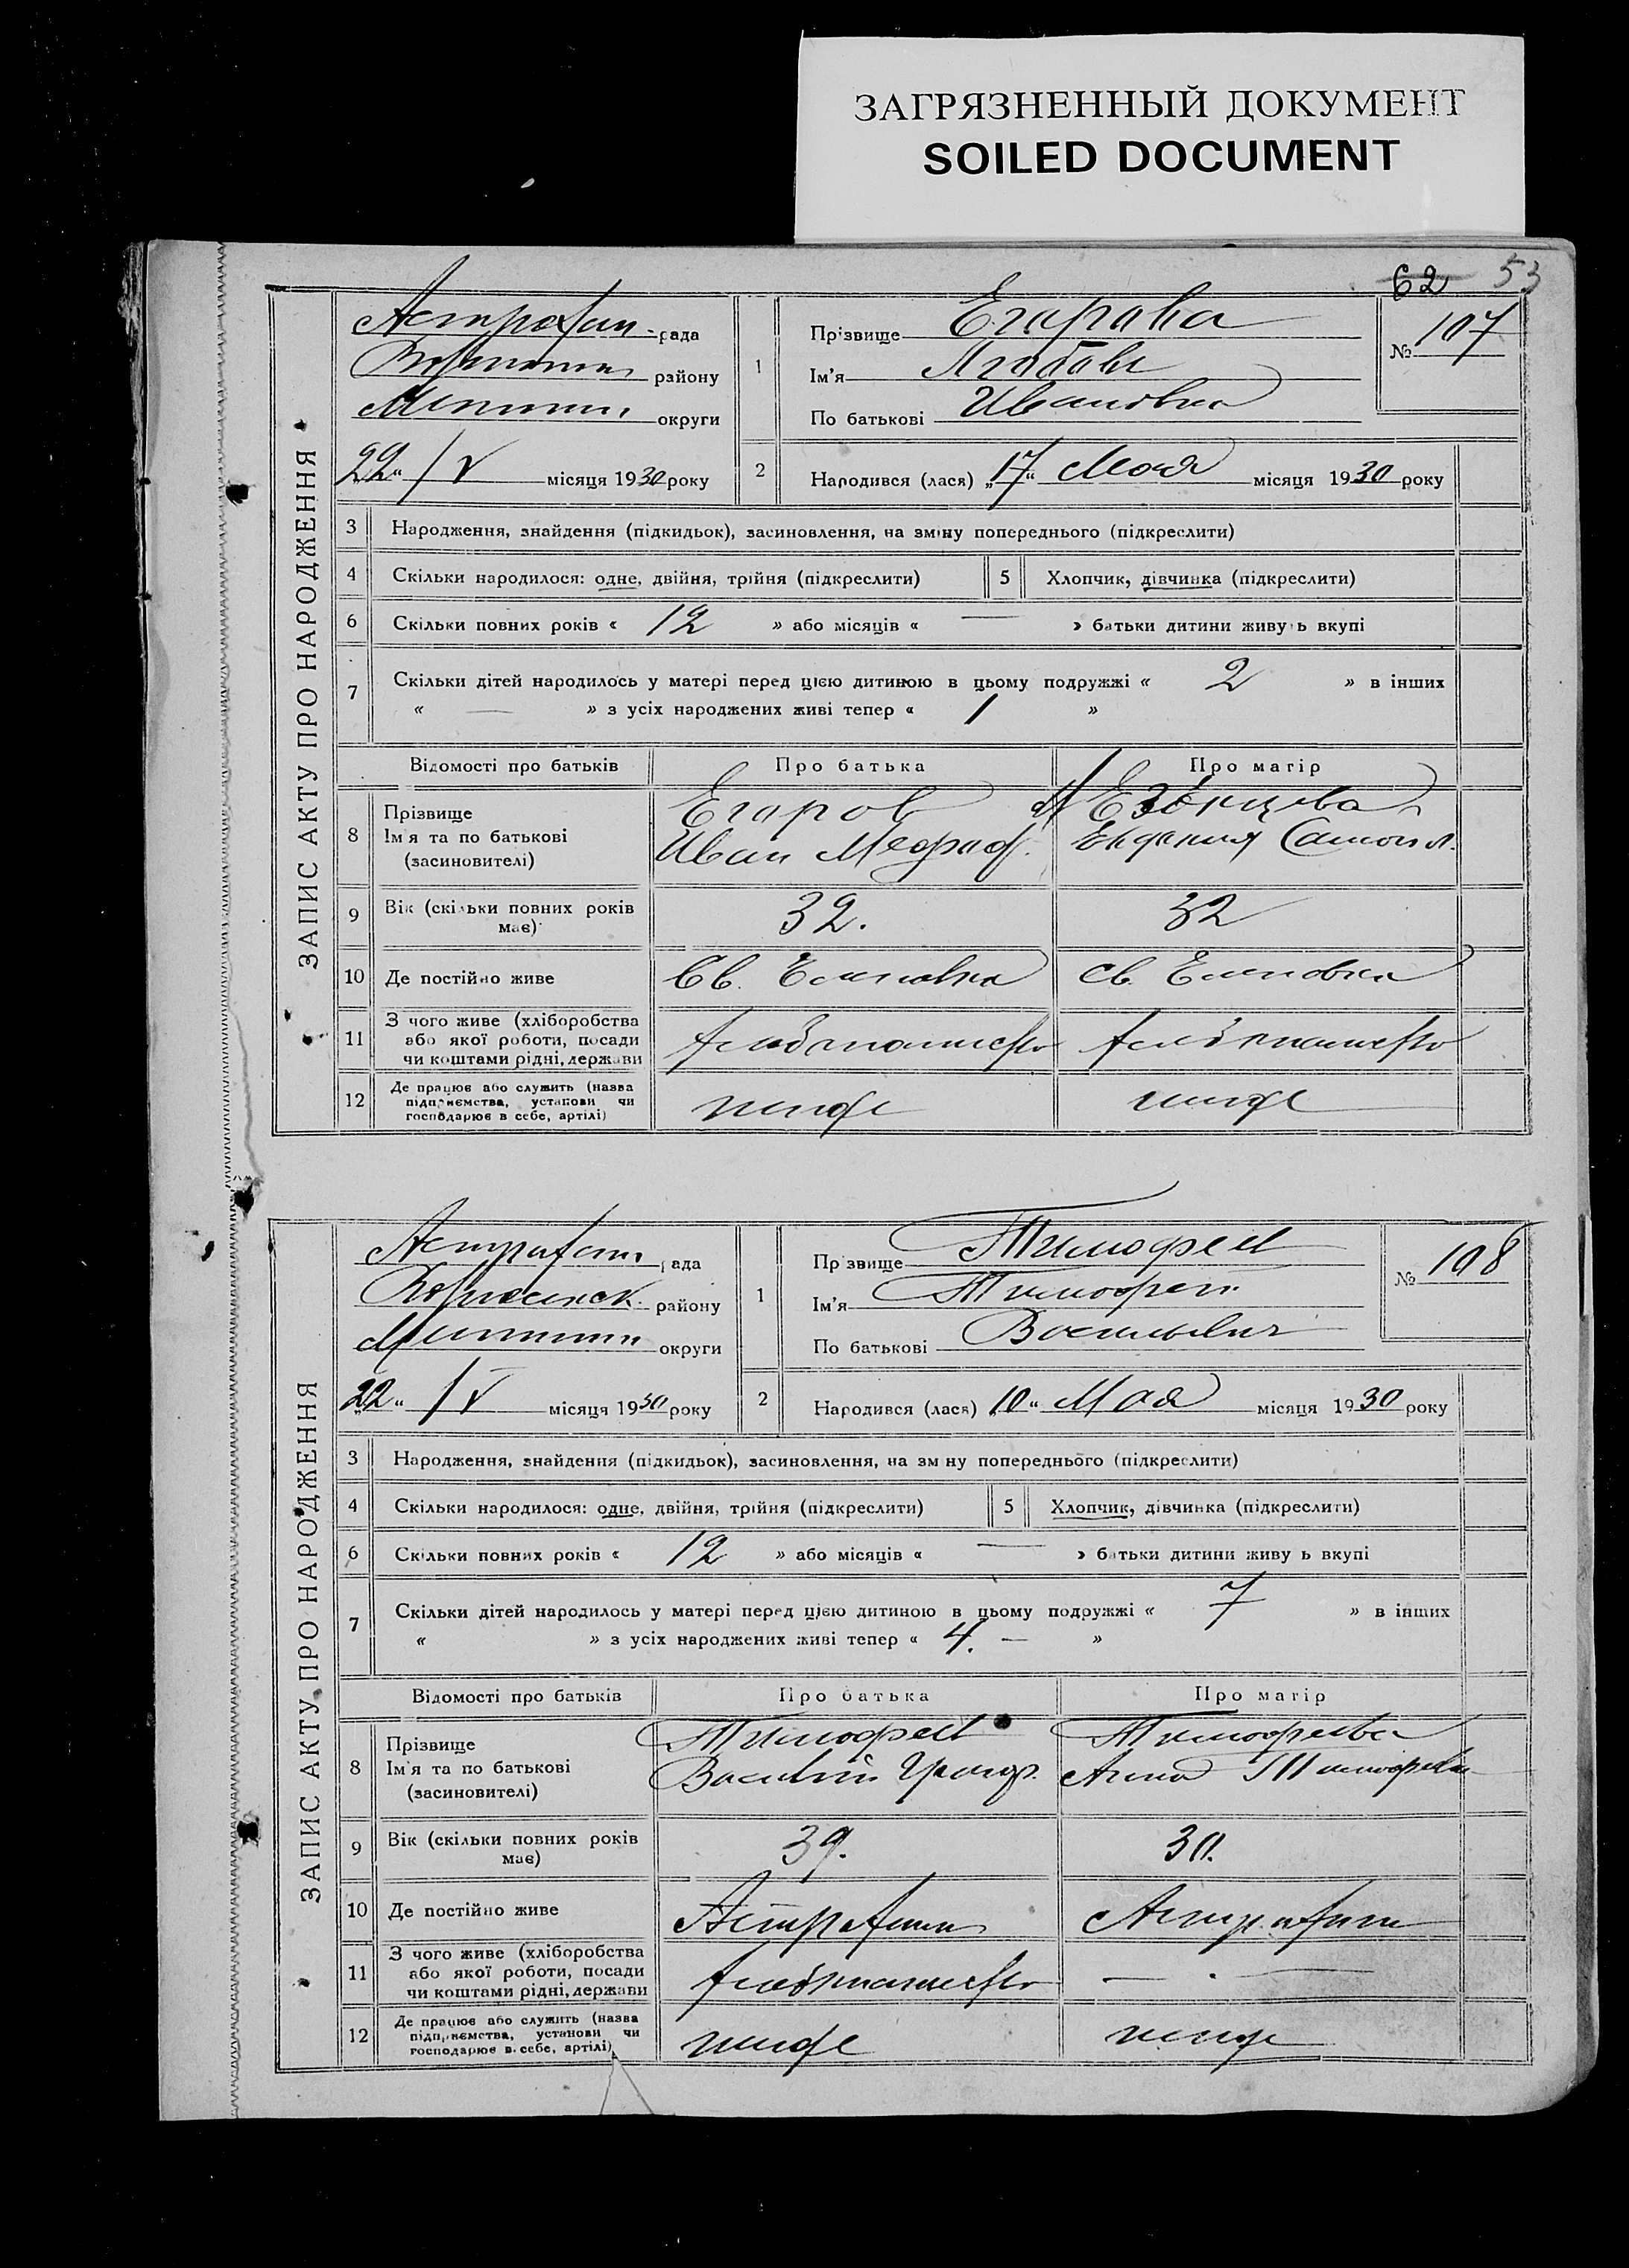 ЗАГРЯЗНЕННЫЙ ДОКУМЕНТ
SOILED DOCUMENT
62 53
ЗАПИС АКТУ ПРО НАРОДЖЕННЯ
Астрахан- рада
району
округи
22" /V місяця 1930 року
1
Прізвище Егарава
Ім'я Любовь
По батькові Ивановна
№ 107
2 Народився (лася) „17" Мая місяця 1930 року
3 Народження, знайдення (підкидьок), засиновлення, на зміну попереднього (підкреслити)
4 Скільки народилося: одне, двійня, трійня (підкреслити) 5 Хлопчик, дівчинка (підкреслити)
6 Скільки повних років « 12 » або місяців « — » батьки дитини живуть вкупі
7 Скільки дітей народилось у матері перед цією дитиною в цьому подружжі « 2 » в інших
« — » з усіх народжених живі тепер « 1 »
Відомості про батьків Про батька Про матір
8 Прізвище
Ім'я та по батькові
(засиновителі)
Егоров
Иван
Евдокия Самойл.
9 Вік (скільки повних років має) 32. 32
10 Де постійно живе
11 З чого живе (хліборобства
або якої роботи, посади
чи коштами рідні, держави
хлебопашество хлебопашество
12 Де працює або служить (назва
підприємства, установи чи
господарює в себе, артілі)
нигде нигде
ЗАПИС АКТУ ПРО НАРОДЖЕННЯ
Астрахан. рада
району
округи
22" /V місяця 1930 року
1
Прізвище Тимофеев
Ім'я Тимофей
По батькові Васильевич
№ 108
2 Народився (лася) „10" Мая місяця 1930 року
3 Народження, знайдення (підкидьок), засиновлення, на зміну попереднього (підкреслити)
4 Скільки народилося: одне, двійня, трійня (підкреслити) 5 Хлопчик, дівчинка (підкреслити)
6 Скільки повних років « 12 » або місяців « — » батьки дитини живуть вкупі
7 Скільки дітей народилось у матері перед цією дитиною в цьому подружжі « 7 » в інших
« » з усіх народжених живі тепер « 4. — »
Відомості про батьків Про батька Про матір
8 Прізвище
Ім'я та по батькові
(засиновителі)
Тимофеев
Василий
Тимофеева
Анна Тимофеев
9 Вік (скільки повних років має) 39. 30.
10 Де постійно живе Астрахан Астрахан
11 З чого живе (хліборобства
або якої роботи, посади
чи коштами рідні, держави
хлебопашество —
12 Де працює або служить (назва
підприємства, установи чи
господарює в себе, артілі)
нигде нигде